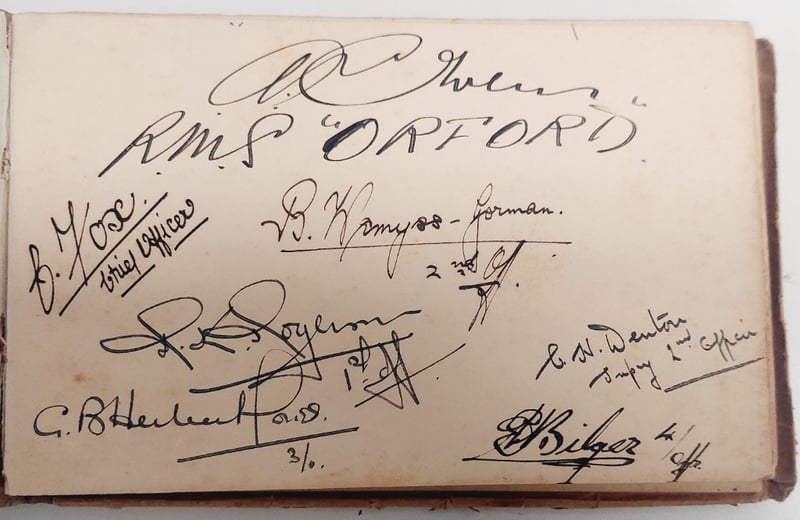 R.M.S "ORFORD"
B. Wemyss-Gorman.
2nd Off.
Fox.
Chief Officer
1st Off
G. B. Herbert
3/o.
C. H. Denton
Supy 2nd Officer
Bilger 4/Off